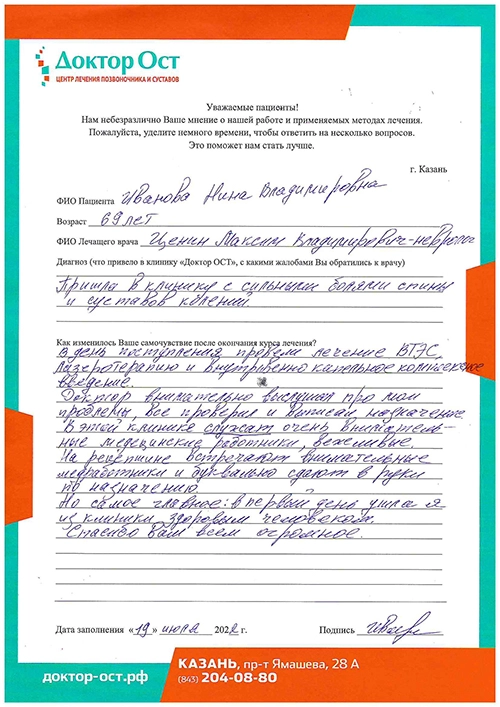 Доктор Ост
ЦЕНТР ЛЕЧЕНИЯ ПОЗВОНОЧНИКА И СУСТАВОВ
Уважаемые пациенты!
Нам небезразлично Ваше мнение о нашей работе и применяемых методах лечения.
Пожалуйста, уделите немного времени, чтобы ответить на несколько вопросов.
Это поможет нам стать лучше.
г. Казань
ФИО Пациента Иванова Нина Владимировна
Возраст 69 лет
ФИО Лечащего врача Ценин Максим Владимирович-невролог
Диагноз (что привело в клинику «Доктор ОСТ», с какими жалобами Вы обратились к врачу)
Пришла в клинику с сильными болями спины
и суставов колений.
Как изменилось Ваше самочувствие после окончания курса лечения?
В день поступления провели лечение ВТЭС,
лазеротерапию и внутривенно капельное комплексное
введение.
Доктор внимательно выслушал про мои
проблемы, все проверил и выписал назначение
В этой клинике служат очень вниматель-
ные медицинские работники, вежливие.
На рецепшине встречают внимательные
медработники и буквально сдают в руки
по назначению.
Но самое главное: в первый день ушла я
из клиники здоровым человеком.
Спасибо Вам всем огромное.
Дата заполнения «19» июля 2022 г. Подпись
доктор-ост.рф
КАЗАНЬ, пр-т Ямашева, 28 А
(843) 204-08-80